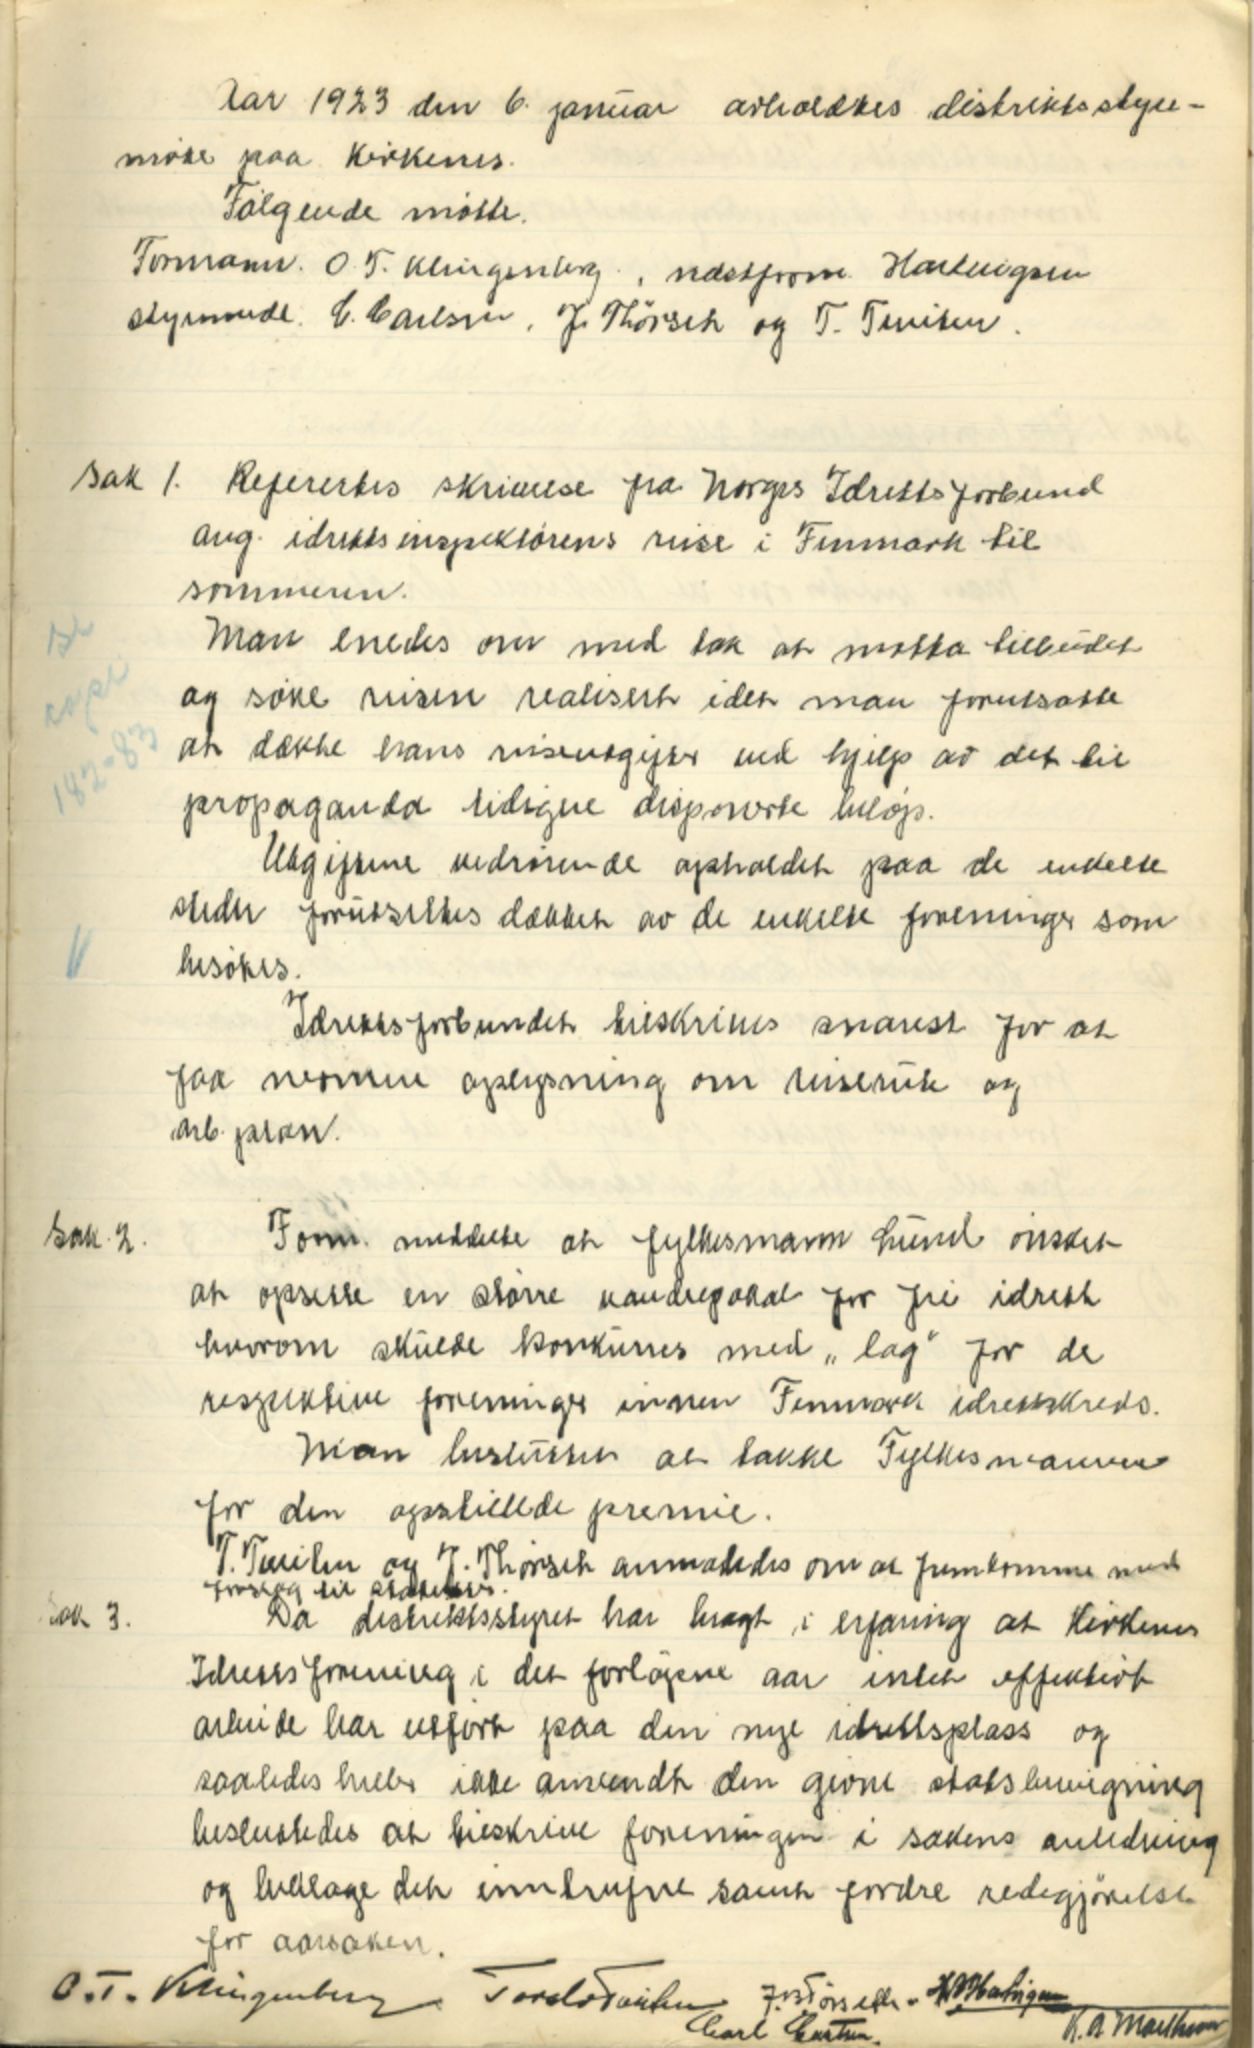 Aar 1923 den 6. januar avholdtes distriktsstyre-
møte paa Kirkenes.
Følgende møtte.
Formann. O. T. Klingenberg, næstform. Hartvigsen
styremedl. C. Carlsen, J. Thørseth og T. Tuiten.
Sak 1. Refertes skrivelse fra Norges Idrettsforbund
ang. idrettsinspektørens reise i Finmark til
sommeren.
Man enedes om med tak at motta tilbudet
og søke reisen realisert idet man forutsatte
at dække hans reiseutgifter ved hjelp av det til
propaganda tidligere disponerte beløp.
Utgiftene vedrørende opholdet paa de enkelte
steder forutsettes dækket av de enkelte foreninger som
besøkes.
Idrettsforbundet tilskrives snarest for at
faa nærmere oplysning om reiserute og
arb. plan.
182-83
Sak. 2.
Form. meddelte at fylkesmann Lund ønsket
at opsette en større vandrepokal for fri idrett
hvorom skulde konkurres med „lag" for de
respektive foreninger innen Finmark idrettskreds.
Man besluttet at takke Fylkesmannen
for den opstillede premie.
T. Tuiten og J. Thørseth anmodedes om at fremkomme med
forslag til statutter.
Sak 3.
Da distriktsstyret har bragt i erfaring at Kirkenes
Idrettsforening i det forløpne aar intet effektivt
arbeide har utført paa den nye idrettsplass og
saaledes heller ikke anvendt den givne statsbevigning
besluttedes at tilskrive foreningen i sakens anledning
og beklage det inntrufne samt fordre redegjørelse
for aarsaken.
O. T. Klingenberg.
Carl Carlsen.